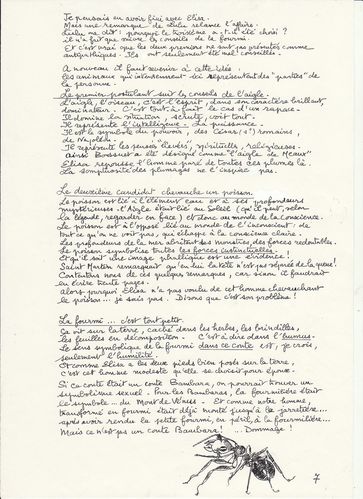 Je pensais en avoir fini avec Elisa.
Mais une remarque de Lulu relance l'affaire.
Lulu me dit : pourquoi le troisième a-t-il été choisi ?
il n'a fait que suivre les conseils de la fourmi.
Et c'est vrai que les deux premiers ne sont pas présentés comme
antipathiques. Ils ont seulement été mal conseillés.
A nouveau il faut revenir à cette idée :
les animaux qui interviennent ici représentent des "parties" de
la personne.
Le premier postulant suit les conseils de l'aigle.
L'aigle, l'oiseau, c'est l'esprit, dans son caractère brillant,
dominateur. C'est tout à fait le cas d'un rapace.
Il domine la situation, scrute, voit tout.
Il représente l'intelligence. La puissance.
Il est le symbole du pouvoir, des Césars romains,
de Napoléon.
Il représente les sens élevés, spirituelles, religieuses.
ainsi Bossuet a été désigné comme "l'aigle de Meaux"
Elisa repousse l'homme paré de toutes ces plumes là.
La somptuosité des plumages ne l'inspire pas.
Le deuxième candidat chevauche un poisson.
Le poisson est lié à l'élément eau et à ses profondeurs
mystérieuses. L'aigle était lié au soleil (qu'il peut, selon
la légende, regarder en face) et donc au monde de la conscience.
Le poisson est à l'opposé lié au monde de l'inconscient : de
tout ce qu'on ne voit pas, qui échappe à la conscience claire.
Les profondeurs de la mer abritent des monstres, des forces redoutables.
Le poisson symbolise toutes les forces instinctuelles.
Et qu'il soit une image phallique est une évidence !
Saint Martin remarquant qu'en lui la tête n'est pas séparée de la queue !
Contentons nous de ces quelques remarques, car sinon il faudrait
en écrire trente pages.
alors pourquoi Elisa n'a pas voulu de cet homme chevauchant
le poisson... je sais pas. Disons que c'est son problème !
La fourmi ... c'est tout petit.
Ça vit sur la terre, caché dans les herbes, les brindilles,
les feuilles en décomposition. C'est à dire dans l'humus.
Le sens symbolique de la fourmi dans ce conte est, je crois,
seulement l'humilité.
Et comme Elisa a les deux pieds bien posés sur la terre,
c'est cet homme modeste qu'elle se choisit pour époux.
Si ce conte était un conte Bambara, on pourrait trouver un
symbolisme sexuel. Pour les Bambaras, la fourmilière était
le symbole ... du Mont de Vénus. Et comme notre homme,
transformé en fourmi était déjà monté jusqu'à la jarretière...
après avoir rendu la petite fourmi, en péril, à la fourmilière...
Mais ce n'est pas un conte Bambara ! ... Dommage !
7